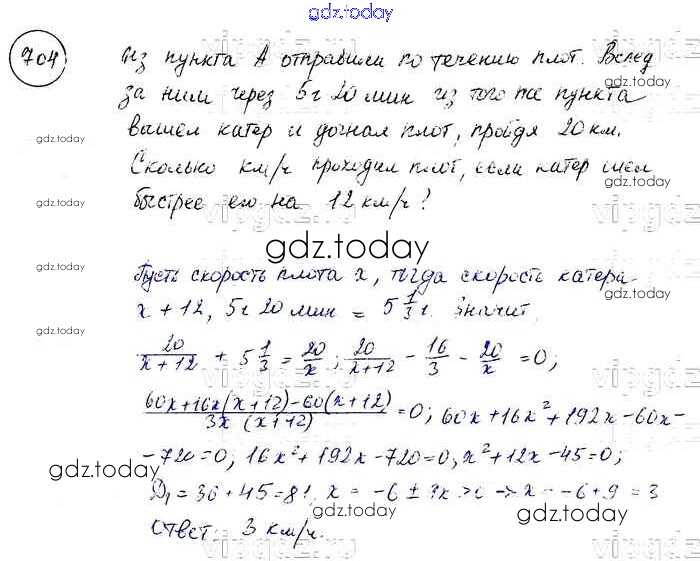 gdz.today
704
Из пункта А отправили по течению плот. Вслед
за ним через 5ч 20 мин из того же пункта
вышел катер и догнал плот, пройдя 20 км.
Сколько км/ч проходил плот, если катер шел
быстрее его на 12 км/ч?
gdz.today
Пусть скорость плота x, тогда скорость катера
x + 12, 5ч 20 мин = 5 1/3 ч. Значит
20/(x+12) + 5 1/3 = 20/x; 20/(x+12) - 16/3 - 20/x = 0;
(60x+16x(x+12)-60(x+12))/(3x(x+12)) = 0; 60x+16x²+192x-60x-
-720=0; 16x²+192x-720=0, x²+12x-45=0;
D₁ = 36+45=81, x = -6 ± 9 x > 0 -> x = -6+9 = 3
Ответ: 3 км/ч.